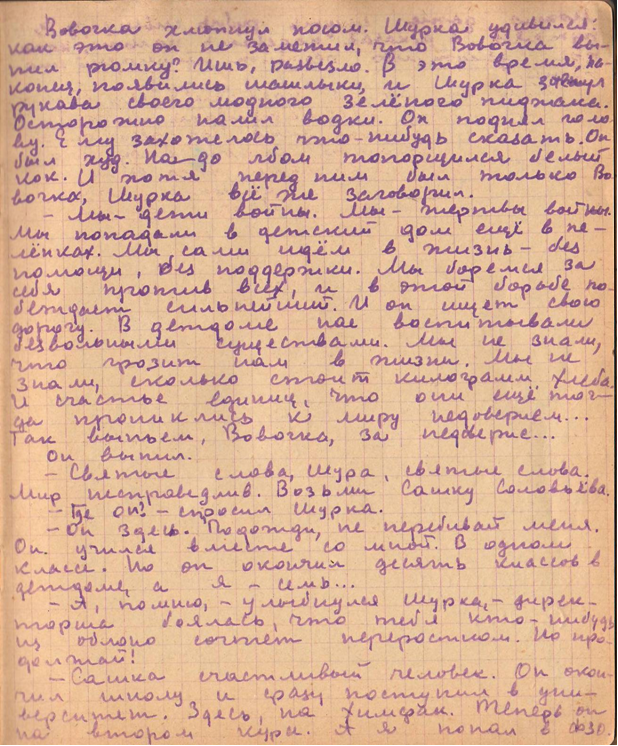 Вовочка хлюпнул носом. Шурка удивился:
как это он не заметил, что Вовочка вы-
пил рюмку? Ишь, развезло. В это время, на-
конец, появились шашлыки, и Шурка
рукава своего модного зелёного пиджака.
Осторожно налил водки. Он поднял голо-
ву. Ему захотелось что-нибудь сказать. Он
был худ. Над лбом топорщился белый
кок. И хотя перед ним был только Во-
вочка, Шурка всё же заговорил.
- Мы - дети войны. Мы - жертвы войны.
Мы попадали в детский дом ещё в пе-
лёнках. Мы сами идём в жизнь - без
помощи, без поддержки. Мы боремся за
себя против всех, и в этой борьбе по-
беждает сильнейший. И он ищет свою
дорогу. В детдоме нас воспитывали
безвольными существами. Мы не знали,
что грозит нам в жизни. Мы не
знали, сколько стоит килограмм хлеба.
И счастье единиц, что они ещё тог-
да прониклись к миру недоверием...
Так выпьем, Вовочка, за недоверие...
Он выпил.
- Святые слова, Шура, святые слова.
Мир несправедлив. Возьми Сашку Соловьёва.
- Где он? - спросил Шурка.
- Он здесь. Подожди, не перебивай меня.
Он учился вместе со мной. В одном
классе. Но он окончил десять классов в
детдоме, а я - семь...
- А, помню, - улыбнулся Шурка, - дирек-
торша боялась, что тебя кто-нибудь
из облоно сочтет переростком. Но про-
должай!
- Сашка счастливый человек. Он окон-
чил школу и сразу поступил в уни-
верситет. Здесь, на химфак. Теперь он
на втором курсе. А я попал в ФЗО.